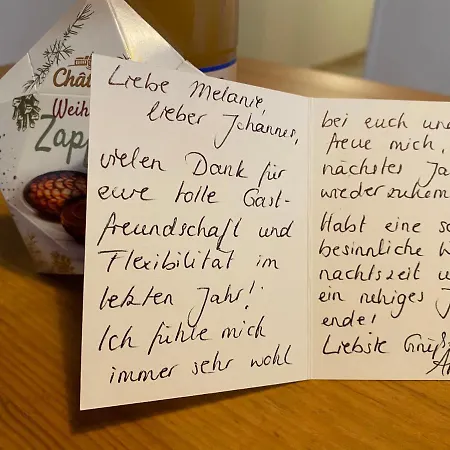 Chât
Weih
Zapf
Liebe Melanie,
lieber Johannes,
vielen Dank für
eure tolle Gast-
freundschaft und
Flexibilität im
letzten Jahr!
Ich fühle mich
immer sehr wohl
bei euch und
freue mich,
nächstes Ja
wiederzukom
Habt eine sc
besinnliche W
nachtszeit u
ein ruhiges J
ende!
Liebste Grüß
An